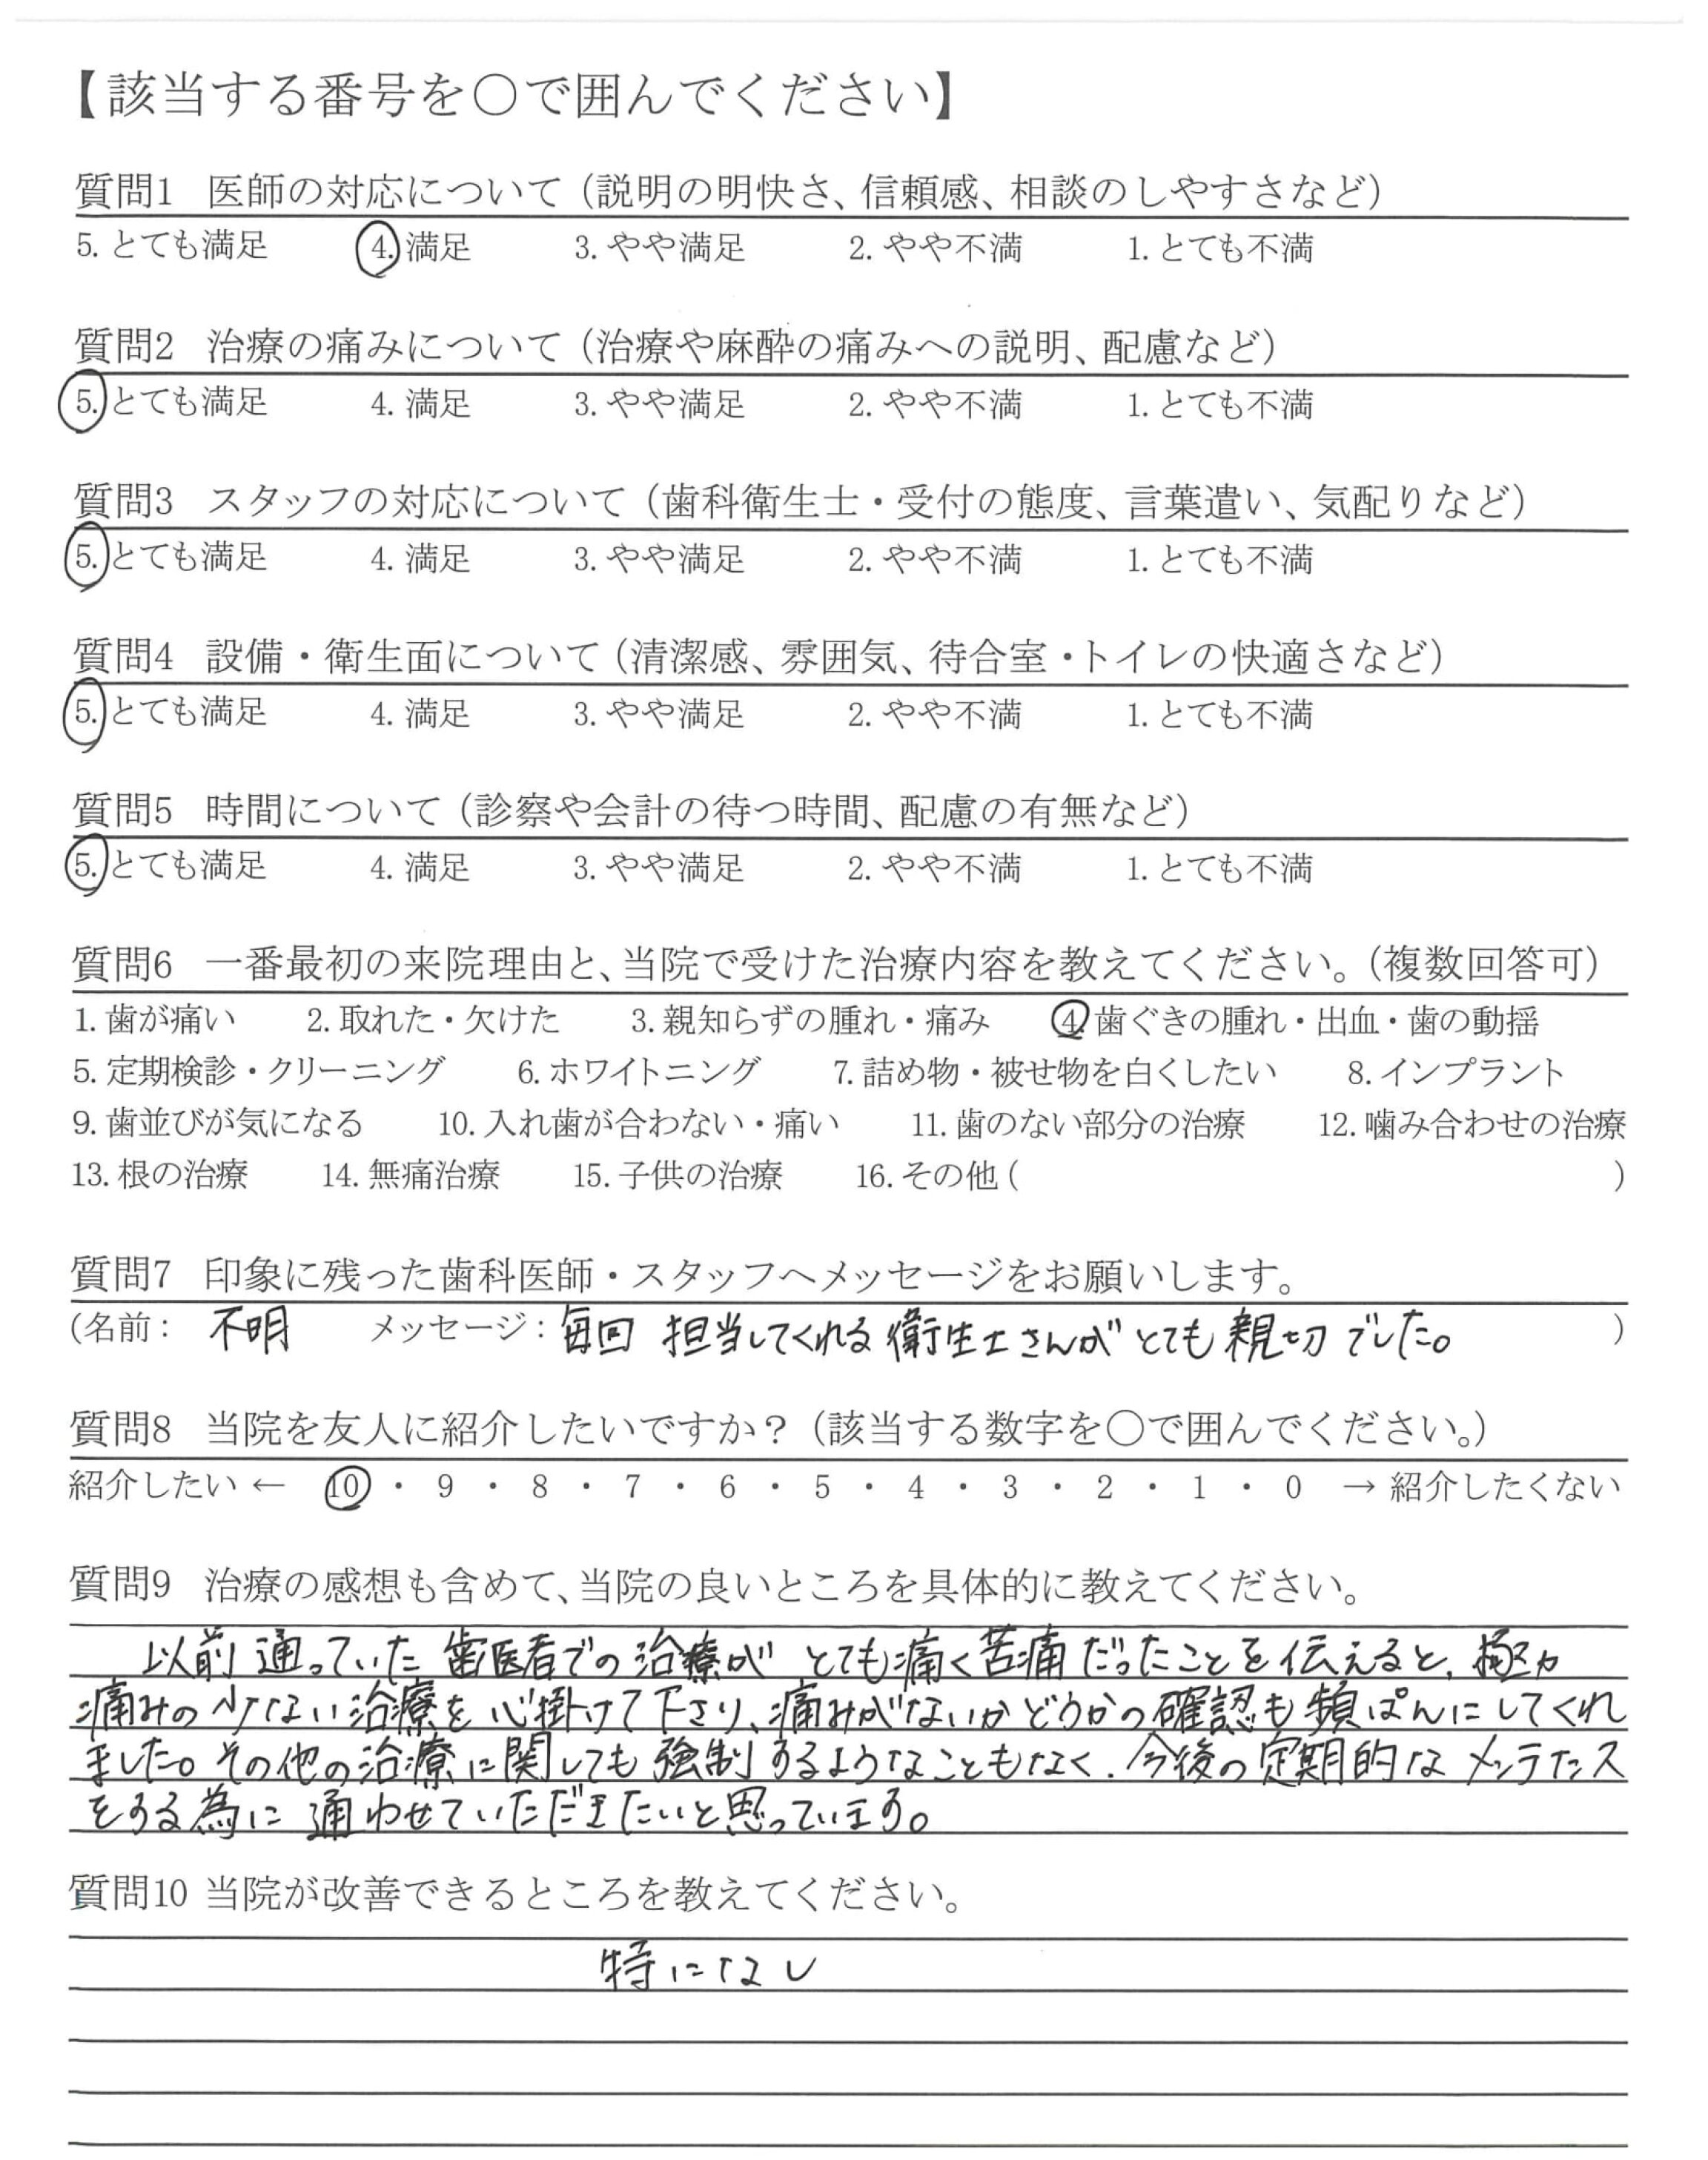 【該当する番号を○で囲んでください】
質問1 医師の対応について（説明の明快さ、信頼感、相談のしやすさなど）
5. とても満足 4. 満足 3. やや満足 2. やや不満 1. とても不満
質問2 治療の痛みについて（治療や麻酔の痛みへの説明、配慮など）
5. とても満足 4. 満足 3. やや満足 2. やや不満 1. とても不満
質問3 スタッフの対応について（歯科衛生士・受付の態度、言葉遣い、気配りなど）
5. とても満足 4. 満足 3. やや満足 2. やや不満 1. とても不満
質問4 設備・衛生面について（清潔感、雰囲気、待合室・トイレの快適さなど）
5. とても満足 4. 満足 3. やや満足 2. やや不満 1. とても不満
質問5 時間について（診察や会計の待つ時間、配慮の有無など）
5. とても満足 4. 満足 3. やや満足 2. やや不満 1. とても不満
質問6 一番最初の来院理由と、当院で受けた治療内容を教えてください。（複数回答可）
1. 歯が痛い 2. 取れた・欠けた 3. 親知らずの腫れ・痛み 4. 歯ぐきの腫れ・出血・歯の動揺
5. 定期検診・クリーニング 6. ホワイトニング 7. 詰め物・被せ物を白くしたい 8. インプラント
9. 歯並びが気になる 10. 入れ歯が合わない・痛い 11. 歯のない部分の治療 12. 噛み合わせの治療
13. 根の治療 14. 無痛治療 15. 子供の治療 16. その他（ ）
質問7 印象に残った歯科医師・スタッフへメッセージをお願いします。
（名前： 不明 メッセージ：毎回 担当してくれる衛生士さんがとても親切でした。 ）
質問8 当院を友人に紹介したいですか？（該当する数字を○で囲んでください。）
紹介したい ← 10 ・ 9 ・ 8 ・ 7 ・ 6 ・ 5 ・ 4 ・ 3 ・ 2 ・ 1 ・ 0 → 紹介したくない
質問9 治療の感想も含めて、当院の良いところを具体的に教えてください。
以前通っていた歯医者での治療がとても痛く苦痛だったことを伝えると、極力
痛みの少ない治療を心掛けて下さり、痛みがないかどうかの確認も頻ぱんにしてくれ
ました。その他の治療に関しても強制するようなこともなく、今後の定期的なメンテナンス
をする為に通わせていただきたいと思っています。
質問10 当院が改善できるところを教えてください。
特になし